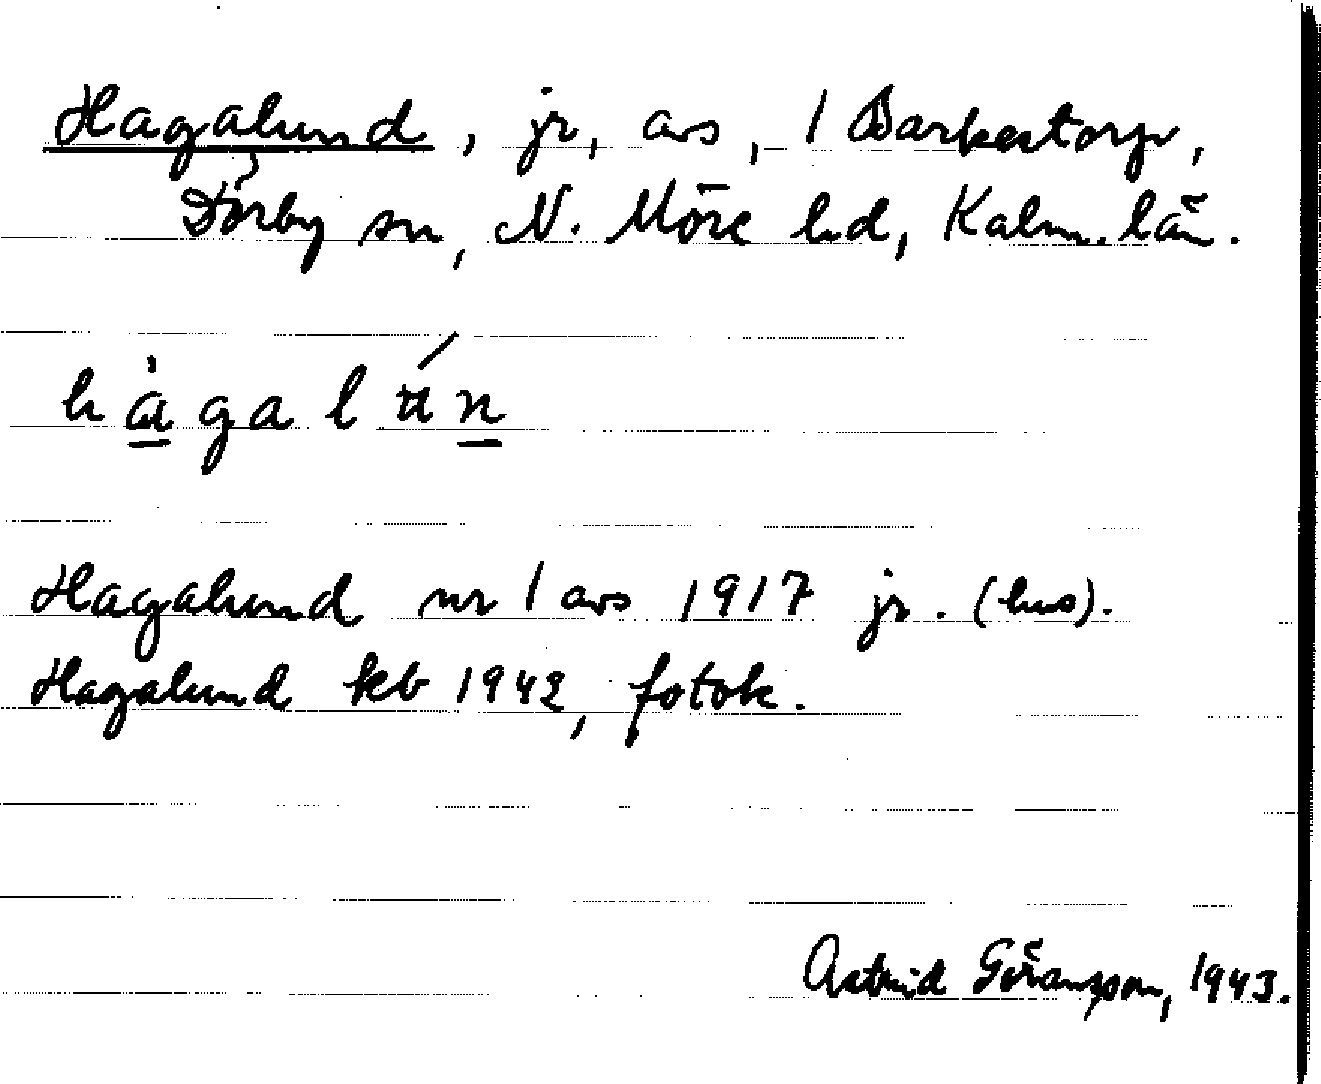 Hagalund, jr, avs, 1 Barkestorp,
Dörby sn, N. Möre hd, Kalm. län.
hàgalún
Hagalund nr 1 avs 1917 jr. (hus).
Hagalund kb 1942, fotok.
Astrid Göransson, 1943.